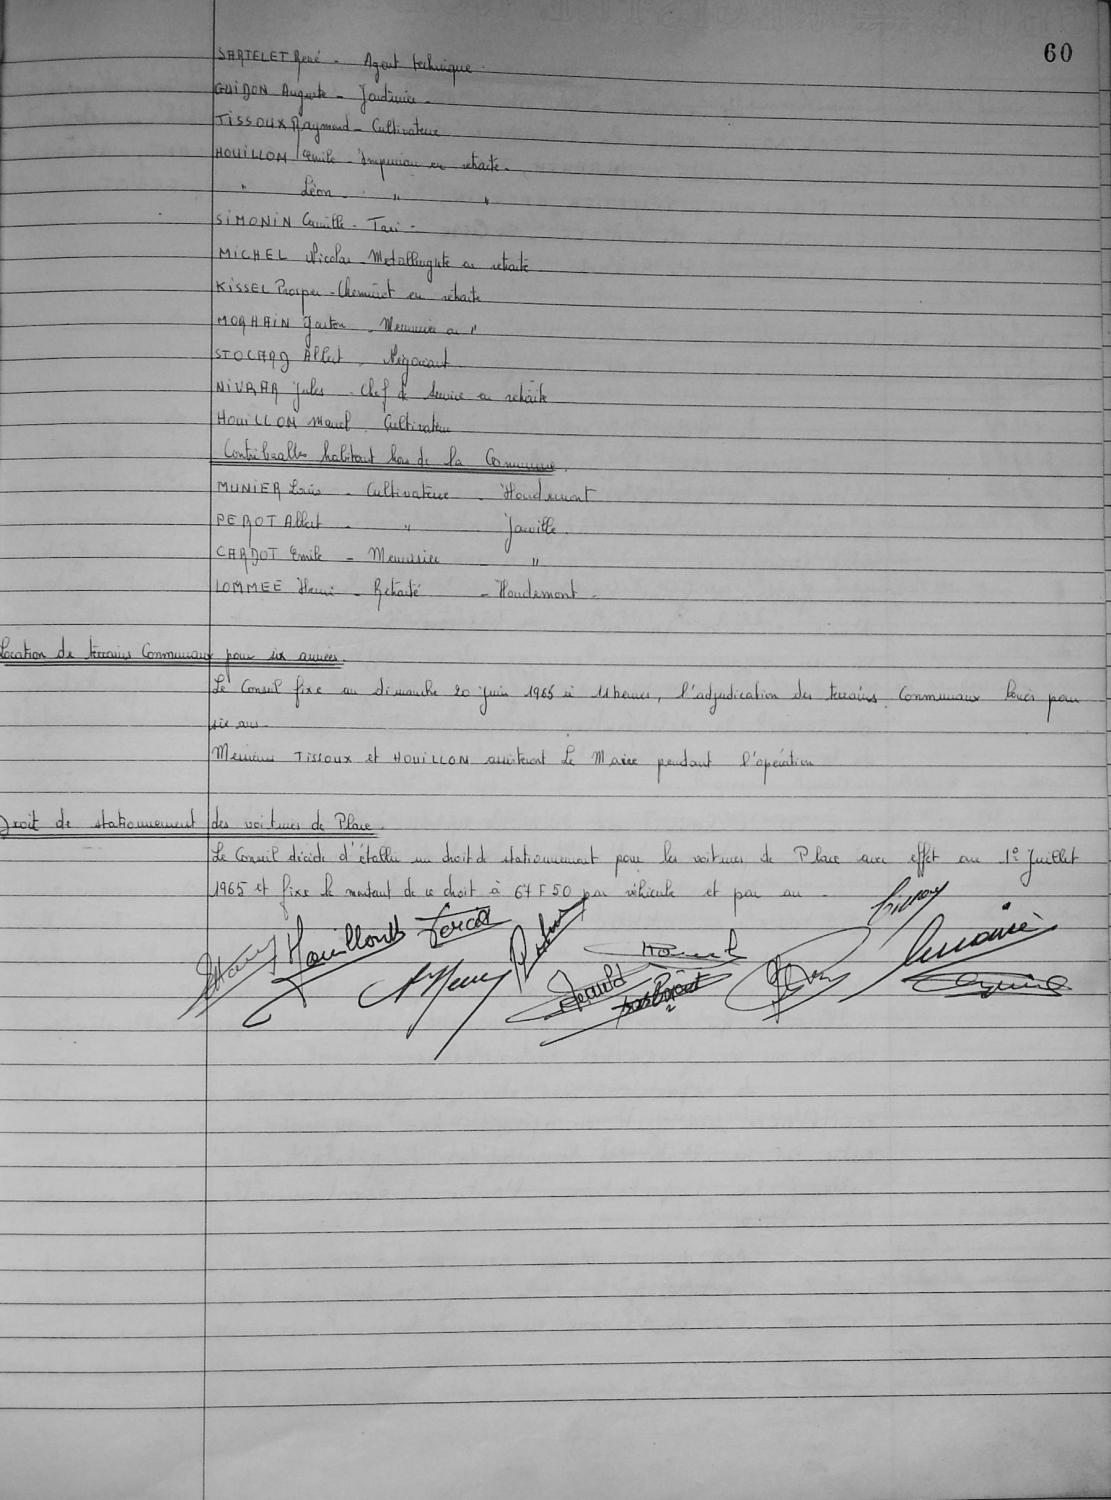 60
SARTELET René - Agent technique
GUIDON Auguste - Jardinier -
TISSOUX Raymond - Cultivateur
HOUILLON Emile - Imprimeur en retraite -
" Léon - " "
SIMONIN Camille - Taxi -
MICHEL Nicolas - Metallurgiste en retraite
KISSEL Prosper - Cheminot en retraite
MORHAIN Gaston - Menuisier en "
STOCARD Albert - Négociant
NIVRAR Jules - Chef de Service en retraite
HOUILLON Marcel - Cultivateur
Contribuables habitant hors de la Commune.
MUNIER Louis - Cultivateur - Houdemont
PEROT Albert - " Jarville
CARDOT Emile - Menuisier - "
LOMMEE Henri - Retraité - Houdemont -
Location de terrains Communaux pour six années.
Le Conseil fixe au dimanche 20 Juin 1965 à 11 heures, l'adjudication des terrains Communaux loués pour
six ans -
Messieurs TISSOUX et HOUILLON assisteront Le Maire pendant l'opération
Droit de stationnement des voitures de Place.
Le Conseil décide d'établir un droit de stationnement pour les voitures de Place avec effet au 1° Juillet
1965 et fixe le montant de ce droit à 67 F 50 par véhicule et par an -
Houillon